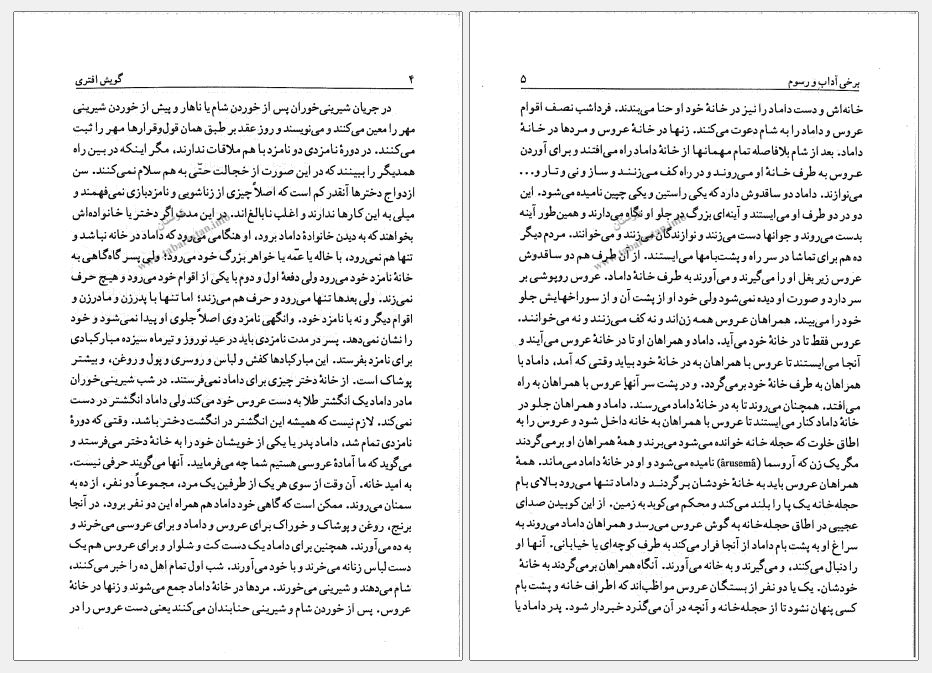 ۴ گویش افتری
در جریان شیرینی‌خوران پس از خوردن شام یا ناهار و پیش از خوردن شیرینی
مهر را معین می‌کنند و می‌نویسند و روز عقد بر طبق همان قول‌وقرارها مهر را ثبت
می‌کنند. در دورهٔ نامزدی دو نامزد با هم ملاقات ندارند، مگر اینکه در بین راه
همدیگر را ببینند که در این صورت از خجالت حتّی به هم سلام نمی‌کنند. سن
ازدواج دخترها آنقدر کم است که اصلاً چیزی از زناشویی و نامزدبازی نمی‌فهمند و
میلی به این کارها ندارند و اغلب نابالغ‌اند. در این مدت اگر دختر یا خانواده‌اش
بخواهند که به دیدن خانوادهٔ داماد برود، او هنگامی می‌رود که داماد در خانه نباشد و
تنها هم نمی‌رود، با خاله یا عمّه یا خواهر بزرگ خود می‌رود؛ ولی پسر گاه‌گاهی به
خانهٔ نامزد خود می‌رود ولی دفعهٔ اول و دوم با یکی از اقوام خود می‌رود و هیچ حرف
نمی‌زند. ولی بعدها تنها می‌رود و حرف هم می‌زند؛ اما تنها با پدرزن و مادرزن و
اقوام دیگر و نه با نامزد خود. وانگهی نامزد وی اصلاً جلوی او پیدا نمی‌شود و خود
را نشان نمی‌دهد. پسر در مدت نامزدی باید در عید نوروز و تیرماه سیزده مبارکبادی
برای نامزد بفرستد. این مبارکبادها کفش و لباس و روسری و پول و روغن، و بیشتر
پوشاک است. از خانهٔ دختر چیزی برای داماد نمی‌فرستند. در شب شیرینی‌خوران
مادر داماد یک انگشتر طلا به دست عروس خود می‌کند ولی داماد انگشتر در دست
نمی‌کند. لازم نیست که همیشه این انگشتر در انگشت دختر باشد. وقتی که دورهٔ
نامزدی تمام شد، داماد پدر یا یکی از خویشان خود را به خانهٔ دختر می‌فرستد و
می‌گوید که ما آمادهٔ عروسی هستیم شما چه می‌فرمایید. آنها می‌گویند حرفی نیست.
به امید خانه. آن وقت از سوی هر یک از طرفین یک مرد، مجموعاً دو نفر، از ده به
سمنان می‌روند. ممکن است که گاهی خود داماد هم همراه این دو نفر برود. در آنجا
برنج، روغن و پوشاک و خوراک برای عروس و داماد و برای عروسی می‌خرند و
به ده می‌آورند. همچنین برای داماد یک دست کت و شلوار و برای عروس هم یک
دست لباس زنانه می‌خرند و با خود می‌آورند. شب اول تمام اهل ده را خبر می‌کنند،
شام می‌دهند و شیرینی می‌خورند. مردها در خانهٔ داماد جمع می‌شوند و زنها در خانهٔ
عروس. پس از خوردن شام و شیرینی حنابندان می‌کنند یعنی دست عروس را در
برخی آداب و رسوم ۵
خانه‌اش و دست داماد را نیز در خانهٔ خود او حنا می‌بندند. فرداشب نصف اقوام
عروس و داماد را به شام دعوت می‌کنند. زنها در خانهٔ عروس و مردها در خانهٔ
داماد. بعد از شام بلافاصله تمام مهمانها از خانهٔ داماد راه می‌افتند و برای آوردن
عروس به طرف خانهٔ او می‌روند و در راه کف می‌زنند و ساز و نی و تار و...
می‌نوازند. داماد دو ساقدوش دارد که یکی راستین و یکی چپین نامیده می‌شود. این
دو در دو طرف او می‌ایستند و آینه‌ای بزرگ در جلو او نگاه می‌دارند و همین‌طور آینه
بدست می‌روند و جوانها دست می‌زنند و نوازندگان می‌زنند و می‌خوانند. مردم دیگر
ده هم برای تماشا در سر راه و پشت‌بامها می‌ایستند. از آن طرف هم دو ساقدوش
عروس زیر بغل او را می‌گیرند و می‌آورند به طرف خانهٔ داماد. عروس روپوشی بر
سر دارد و صورت او دیده نمی‌شود ولی خود او از پشت آن و از سوراخهایش جلو
خود را می‌بیند. همراهان عروس همه زن‌اند و نه کف می‌زنند و نه می‌خوانند.
عروس فقط تا در خانهٔ خود می‌آید. داماد و همراهان او تا در خانهٔ عروس می‌آیند و
آنجا می‌ایستند تا عروس با همراهان به در خانهٔ خود بیاید وقتی که آمد، داماد با
همراهان به طرف خانهٔ خود برمی‌گردد. و در پشت سر آنها عروس با همراهان به راه
می‌افتد. همچنان می‌روند تا به در خانهٔ داماد می‌رسند. داماد و همراهان جلو در
خانهٔ داماد کنار می‌ایستند تا عروس با همراهان به خانه داخل شود و عروس را به
اطاق خلوت که حجله خانه خوانده می‌شود می‌برند و همهٔ همراهان او برمی‌گردند
مگر یک زن که آروسما (ârusemâ) نامیده می‌شود و او در خانهٔ داماد می‌ماند. همهٔ
همراهان عروس باید به خانهٔ خودشان برگردنـد و داماد تنها می‌رود بالای بام
حجله‌خانه یک پا را بلند می‌کند و محکم می‌کوبد به زمین. از این کوبیدن صدای
عجیبی در اطاق حجله‌خانه به گوش عروس می‌رسد و همراهان داماد می‌روند به
سراغ او به پشت بام داماد از آنجا فرار می‌کند به طرف کوچه‌ای یا خیابانی. آنها او
را دنبال می‌کنند، و می‌گیرند و به خانه می‌آورند. آنگاه همراهان برمی‌گردند به خانهٔ
خودشان. یک یا دو نفر از بستگان عروس مواظب‌اند که اطراف خانه و پشت بام
کسی پنهان نشود تا از حجله‌خانه و آنچه در آن می‌گذرد خبردار شود. پدر داماد یا